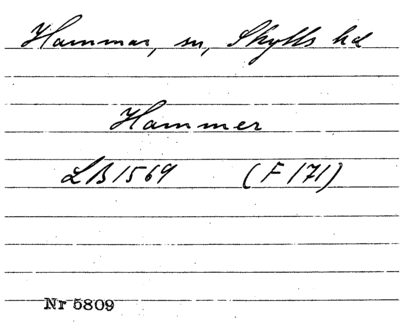 Hammar, sn, Skytts hd
Hammer
LB 1569 (F 171)
Nr 5809